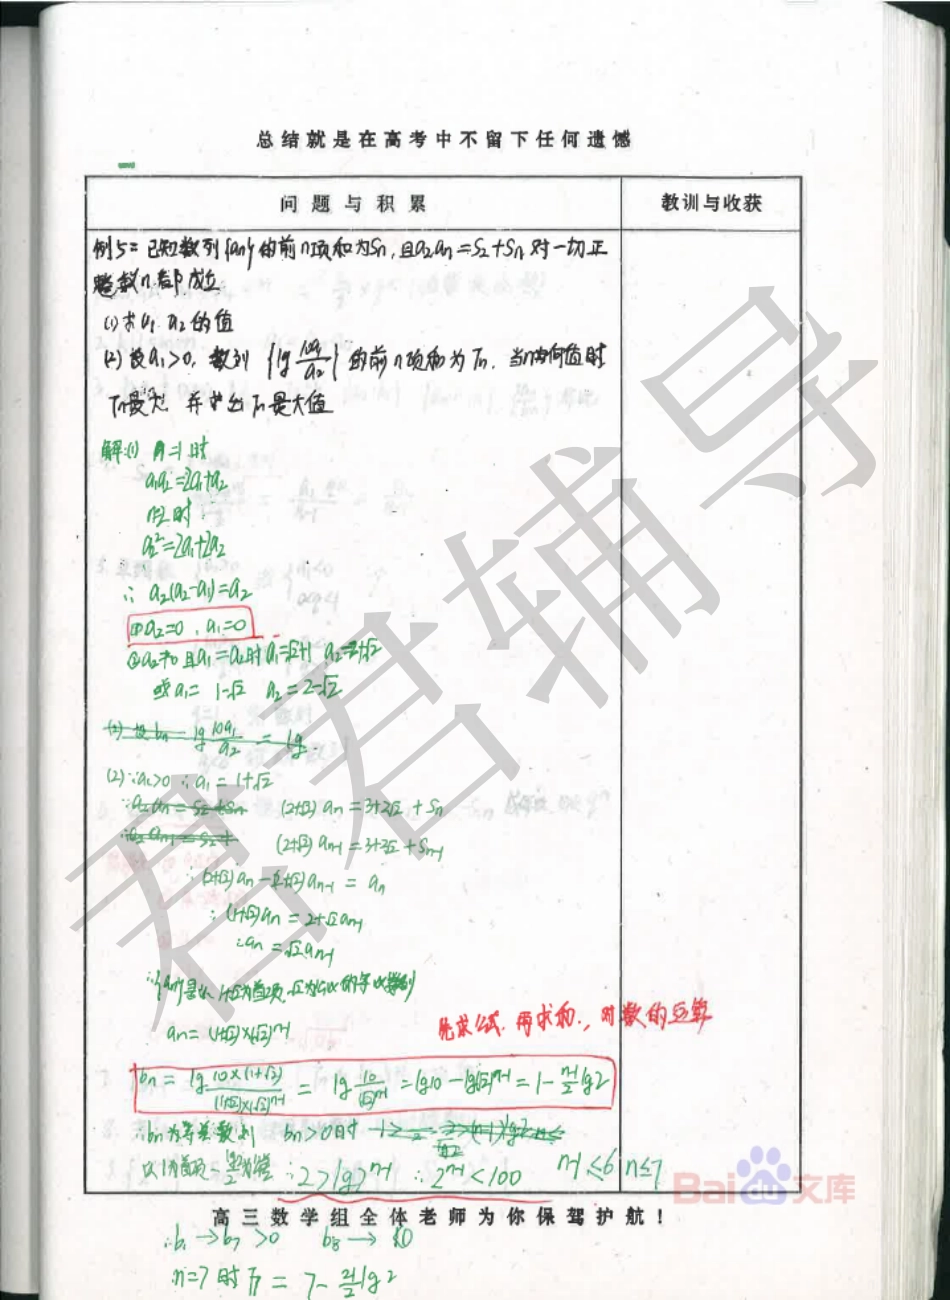 总结就是在高考中不留下任何遗憾
问题与积累
教训与收获
例5: 已知数列{an}的前n项和为Sn,且a2an=S2+Sn对一切正
整数n都成立
(1)求a1.a2的值
(2)设a1>0.数列{lg 10a1/a2}的前n项和为Tn.当n为何值时
Tn最大.并求出Tn最大值
解:(1) n=1时
a1a2=2a1+a2
n=2时
a2²=2a1+2a2
∴ a2(a2-a1)=a2
①a2=0,a1=0
②a2≠0且a1=a2时a1=√2+1 a2=2+√2
或a1=1-√2 a2=2-√2
(2)设bn=lg 10a1/a2=lg
(2)∵a1>0∴a1=1+√2
∵a2an=S2+Sn (2+√2)an=3+2√2+Sn
∵a2an-1=S2+ (2+√2)an-1=3+2√2+Sn-1
∴(2+√2)an-(2+√2)an-1=an
∴(1+√2)an=2+√2an-1
∴an=√2an-1
∴{an}是以1+√2为首项.√2为公比的等比数列
an=(1+√2)×(√2)^n-1
先求公式.再求和.,对数的运算
bn=lg 10×(1+√2)/(1+√2)×(√2)^n-1=lg 10/(√2)^n-1=lg10-lg(√2)^n-1=1-n-1/2 lg2
∴bn为等差数列 bn>0时
以1为首项-lg2/2为公差 ∴2>lg2^n-1 ∴2^n-1<100 n-1≤6 n≤7
Bai文库
高三数学组全体老师为你保驾护航!
∴b1→b7>0 b8→<0
n=7时T7=7-21/2 lg2
君君辅导